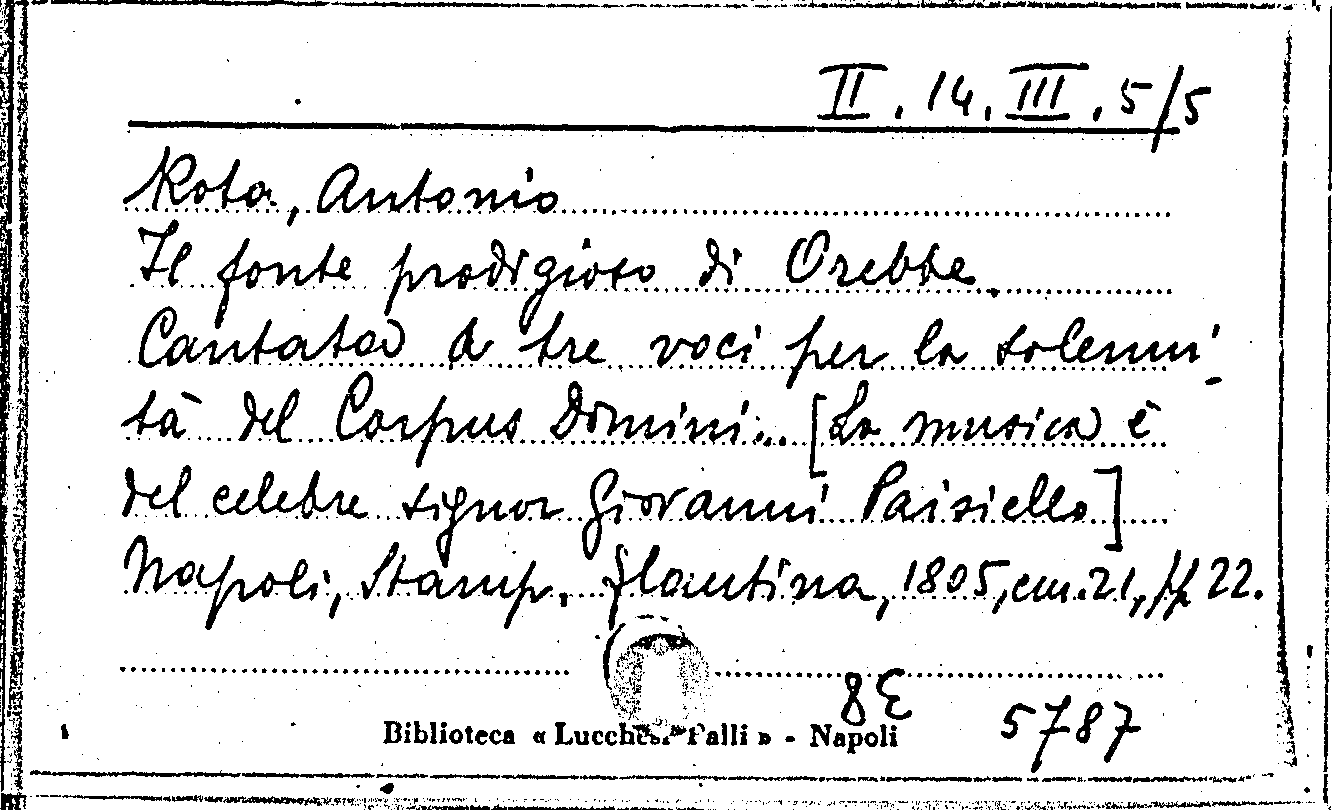 II. 14. III. 5/5
Rota, Antonio
Il fonte prodigioso di Orebbe.
Cantata a tre voci per la solenni-
tà del Corpus Domini... [La musica è
del celebre signor Giovanni Paisiello]
Napoli, Stamp. flautina, 1805, cm. 21, pp. 22.
8E
5787
Biblioteca « Lucchesi Palli » - Napoli